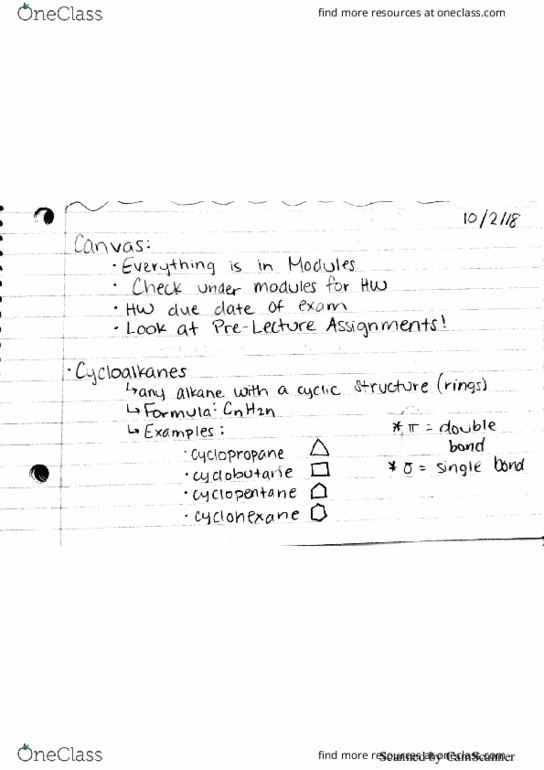 OneClass
find more resources at oneclass.com
10/2/18
Canvas:
· Everything is in Modules
· Check under modules for HW
· HW due date of exam
· Look at Pre-Lecture Assignments!
· Cycloalkanes
↳ any alkane with a cyclic structure (rings)
↳ Formula: CnH2n
↳ Examples:
· cyclopropane
· cyclobutane
· cyclopentane
· cyclohexane
* π = double
bond
* σ = single bond
OneClass
find more resources at oneclass.com
Scanned by CamScanner